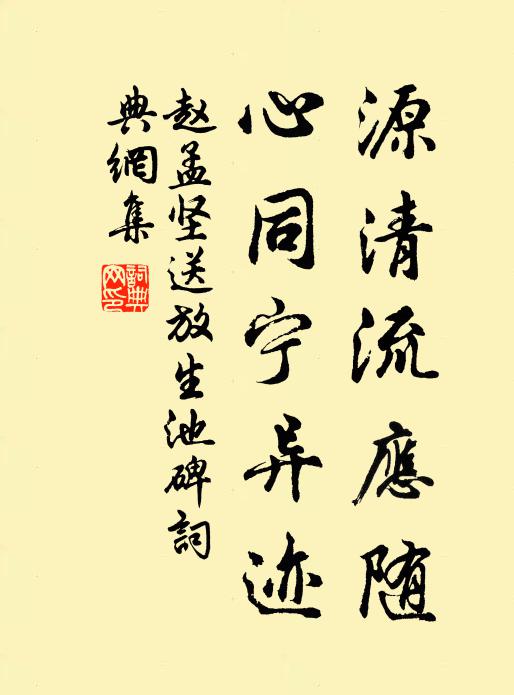 源清流應随
心同宁异迹
赵孟坚送放生池碑詞
典網集
詞典
网印